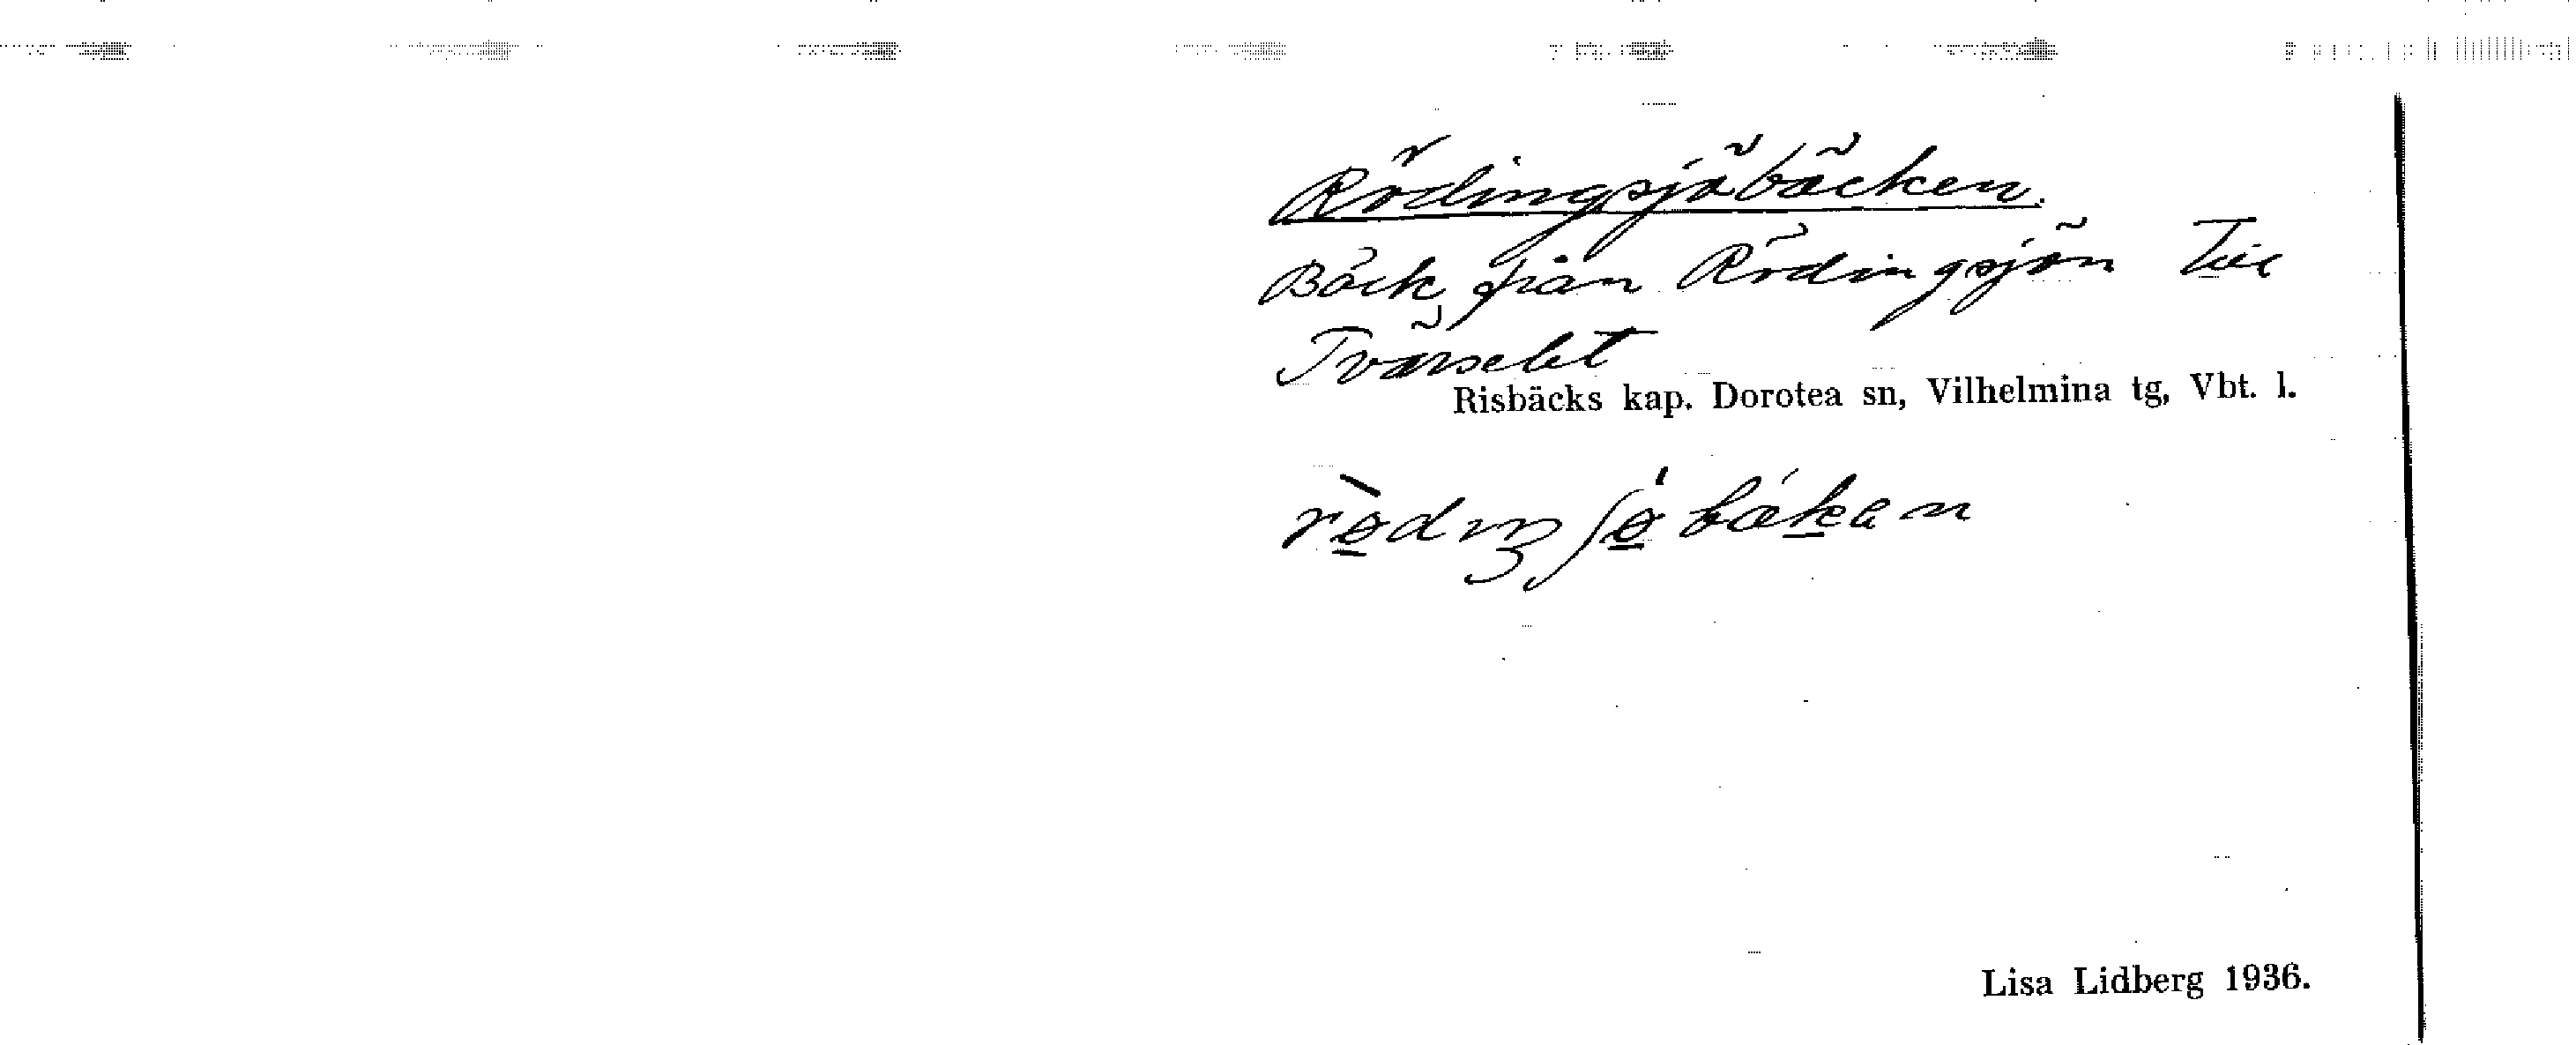 Rödingsjöbäcken.
Bäck från Rödingsjön till
Tvärselet
Risbäcks kap. Dorotea sn, Vilhelmina tg, Vbt. l.
rø̀dıŋʃø̍bǽkan
Lisa Lidberg 1936.